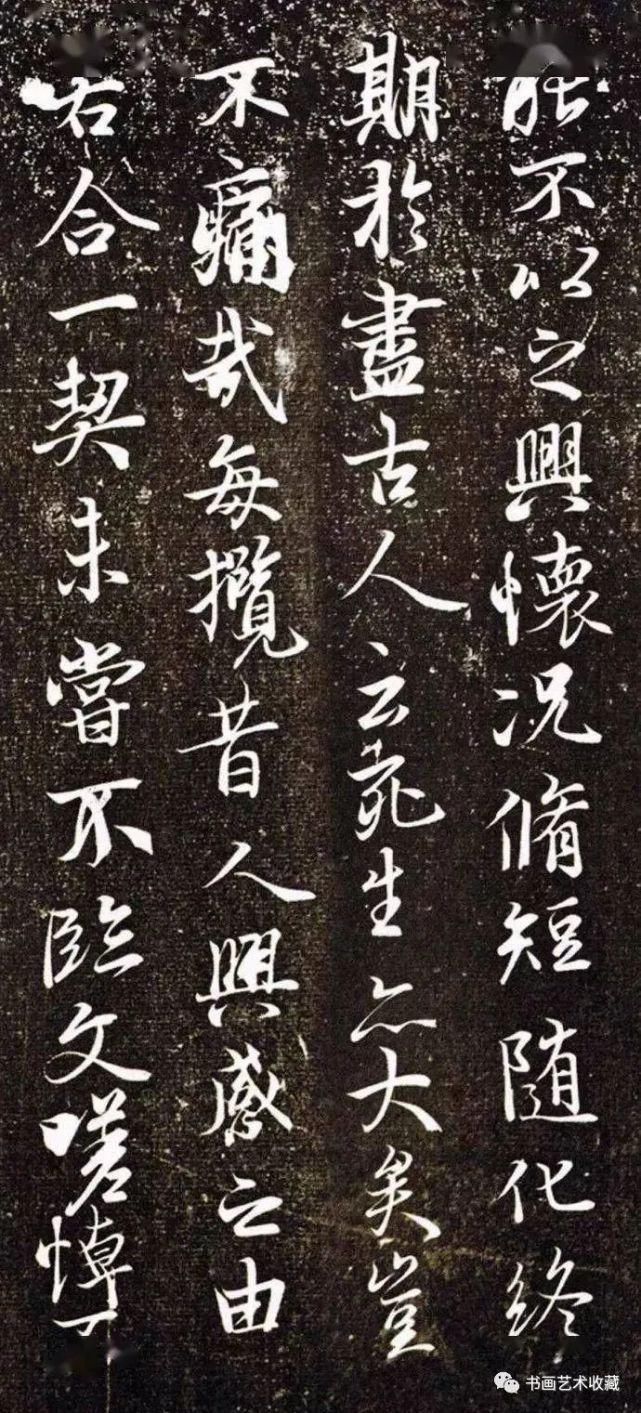 能不以之興懷況脩短隨化終
期於盡古人云死生亦大矣豈
不痛哉每攬昔人興感之由
若合一契未嘗不臨文嗟悼不
书画艺术收藏